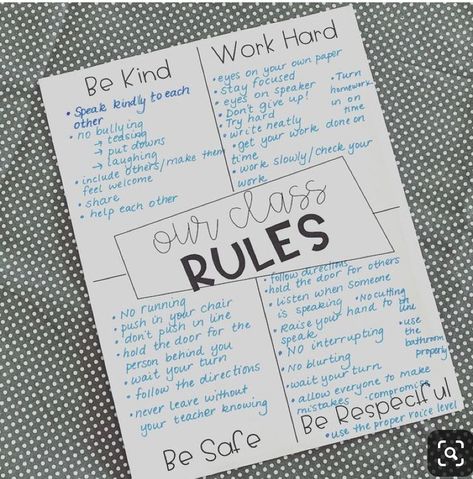 Be Kind
• Speak kindly to each
other
• no bullying
→ teasing
→ put downs
→ laughing
• include others/make them
feel welcome
• share
• help each other
Work Hard
• eyes on your own paper
• stay focused
• eyes on speaker
• Don't give up!
Try hard
• write neatly
• get your work done on
time
• work slowly/check your
work
• Turn
homework
in on
time
our class
RULES
• No running
• push in your chair
• don't push in line
• hold the door for the
person behind you
• wait your turn
• follow the directions
• never leave without
your teacher knowing
Be Safe
• follow directions
• hold the door for others
• listen when someone
is speaking
• No cutting
in line
• Raise your hand to
speak
• use
the
bathroom
properly
• No interrupting
• No blurting
• wait your turn
• allow everyone to make
mistakes
• compromise
Be Respectful
• use the proper voice level